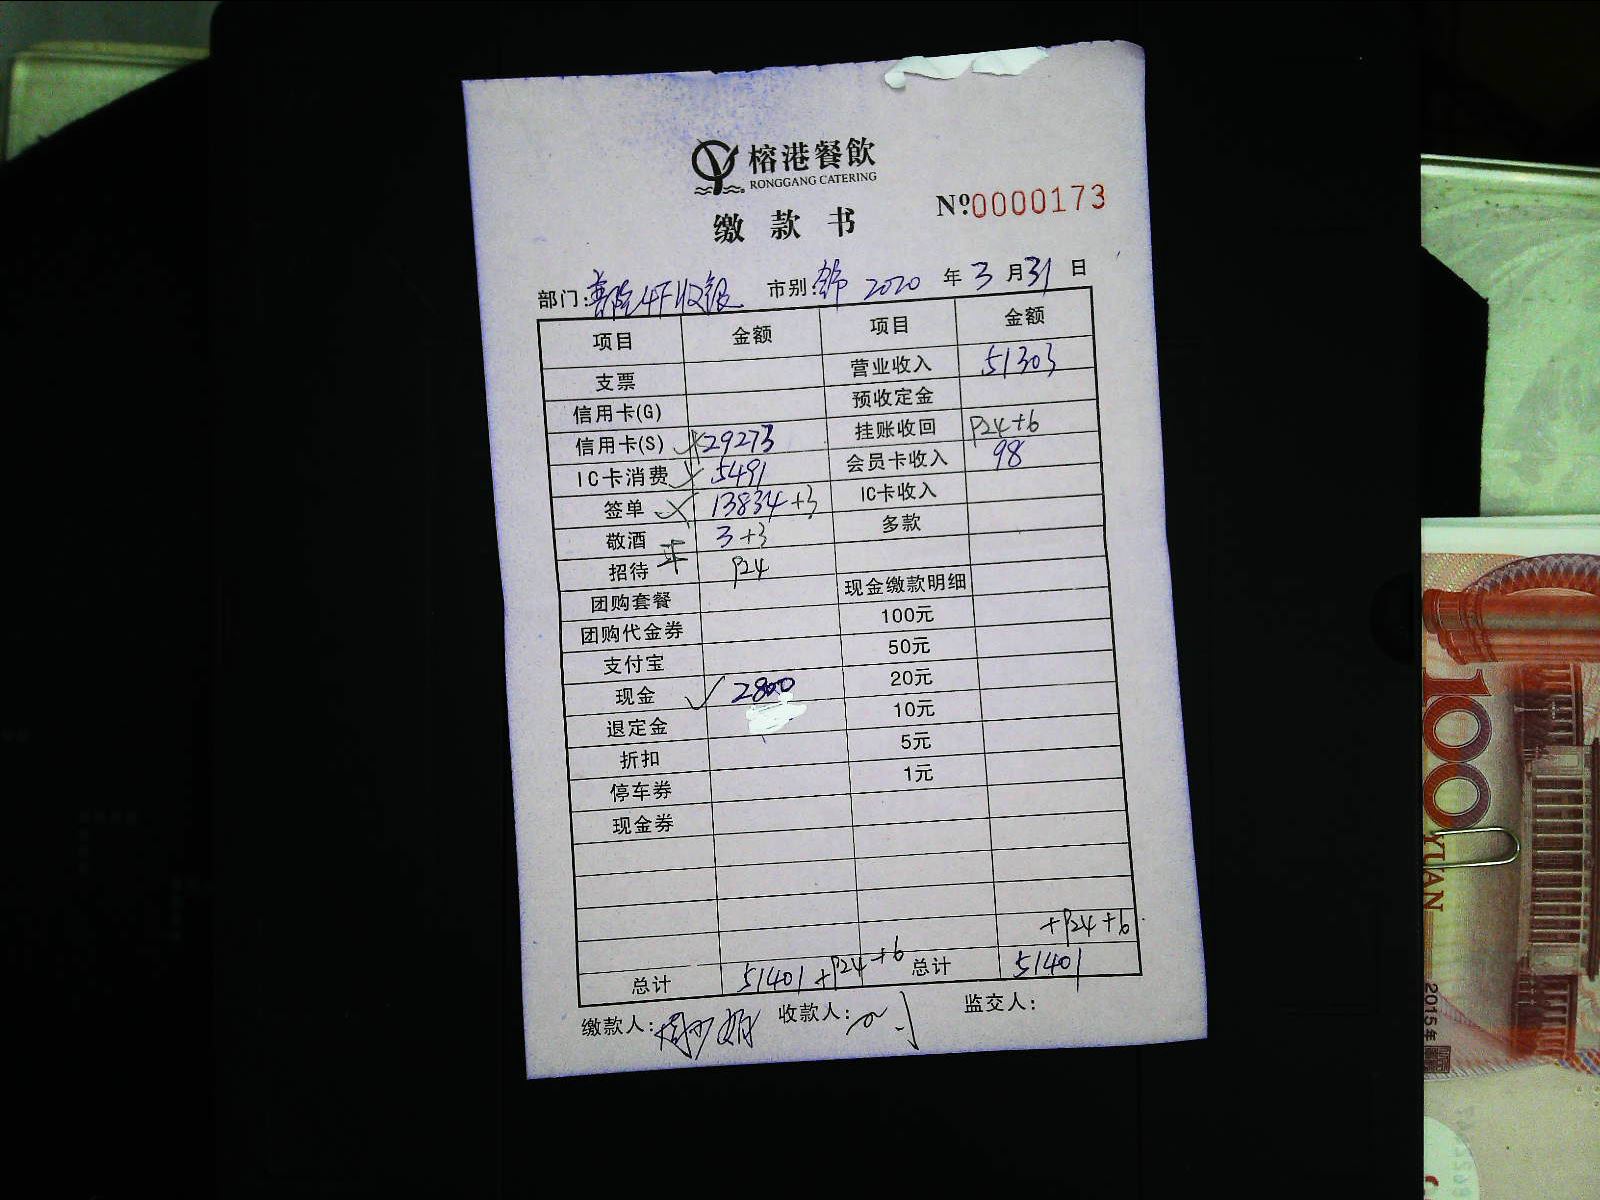 榕港餐飲
RONGGANG CATERING
缴款书
№0000173
部门: 4F收银 市别: 2020 年 3 月 31 日
项目 金额 项目 金额
支票 营业收入 51303
信用卡(G) 预收定金
信用卡(S) 29273 挂账收回 P24+6
IC卡消费 5491 会员卡收入 98
签单 13834+3 IC卡收入
敬酒 3+3 多款
招待 P24
团购套餐 现金缴款明细
团购代金券 100元
支付宝 50元
现金 2800 20元
退定金 10元
折扣 5元
停车券 1元
现金券
+P24+6
总计 51401+P24+6 总计 51401
缴款人: 收款人: 监交人:
100
YUAN
2015年